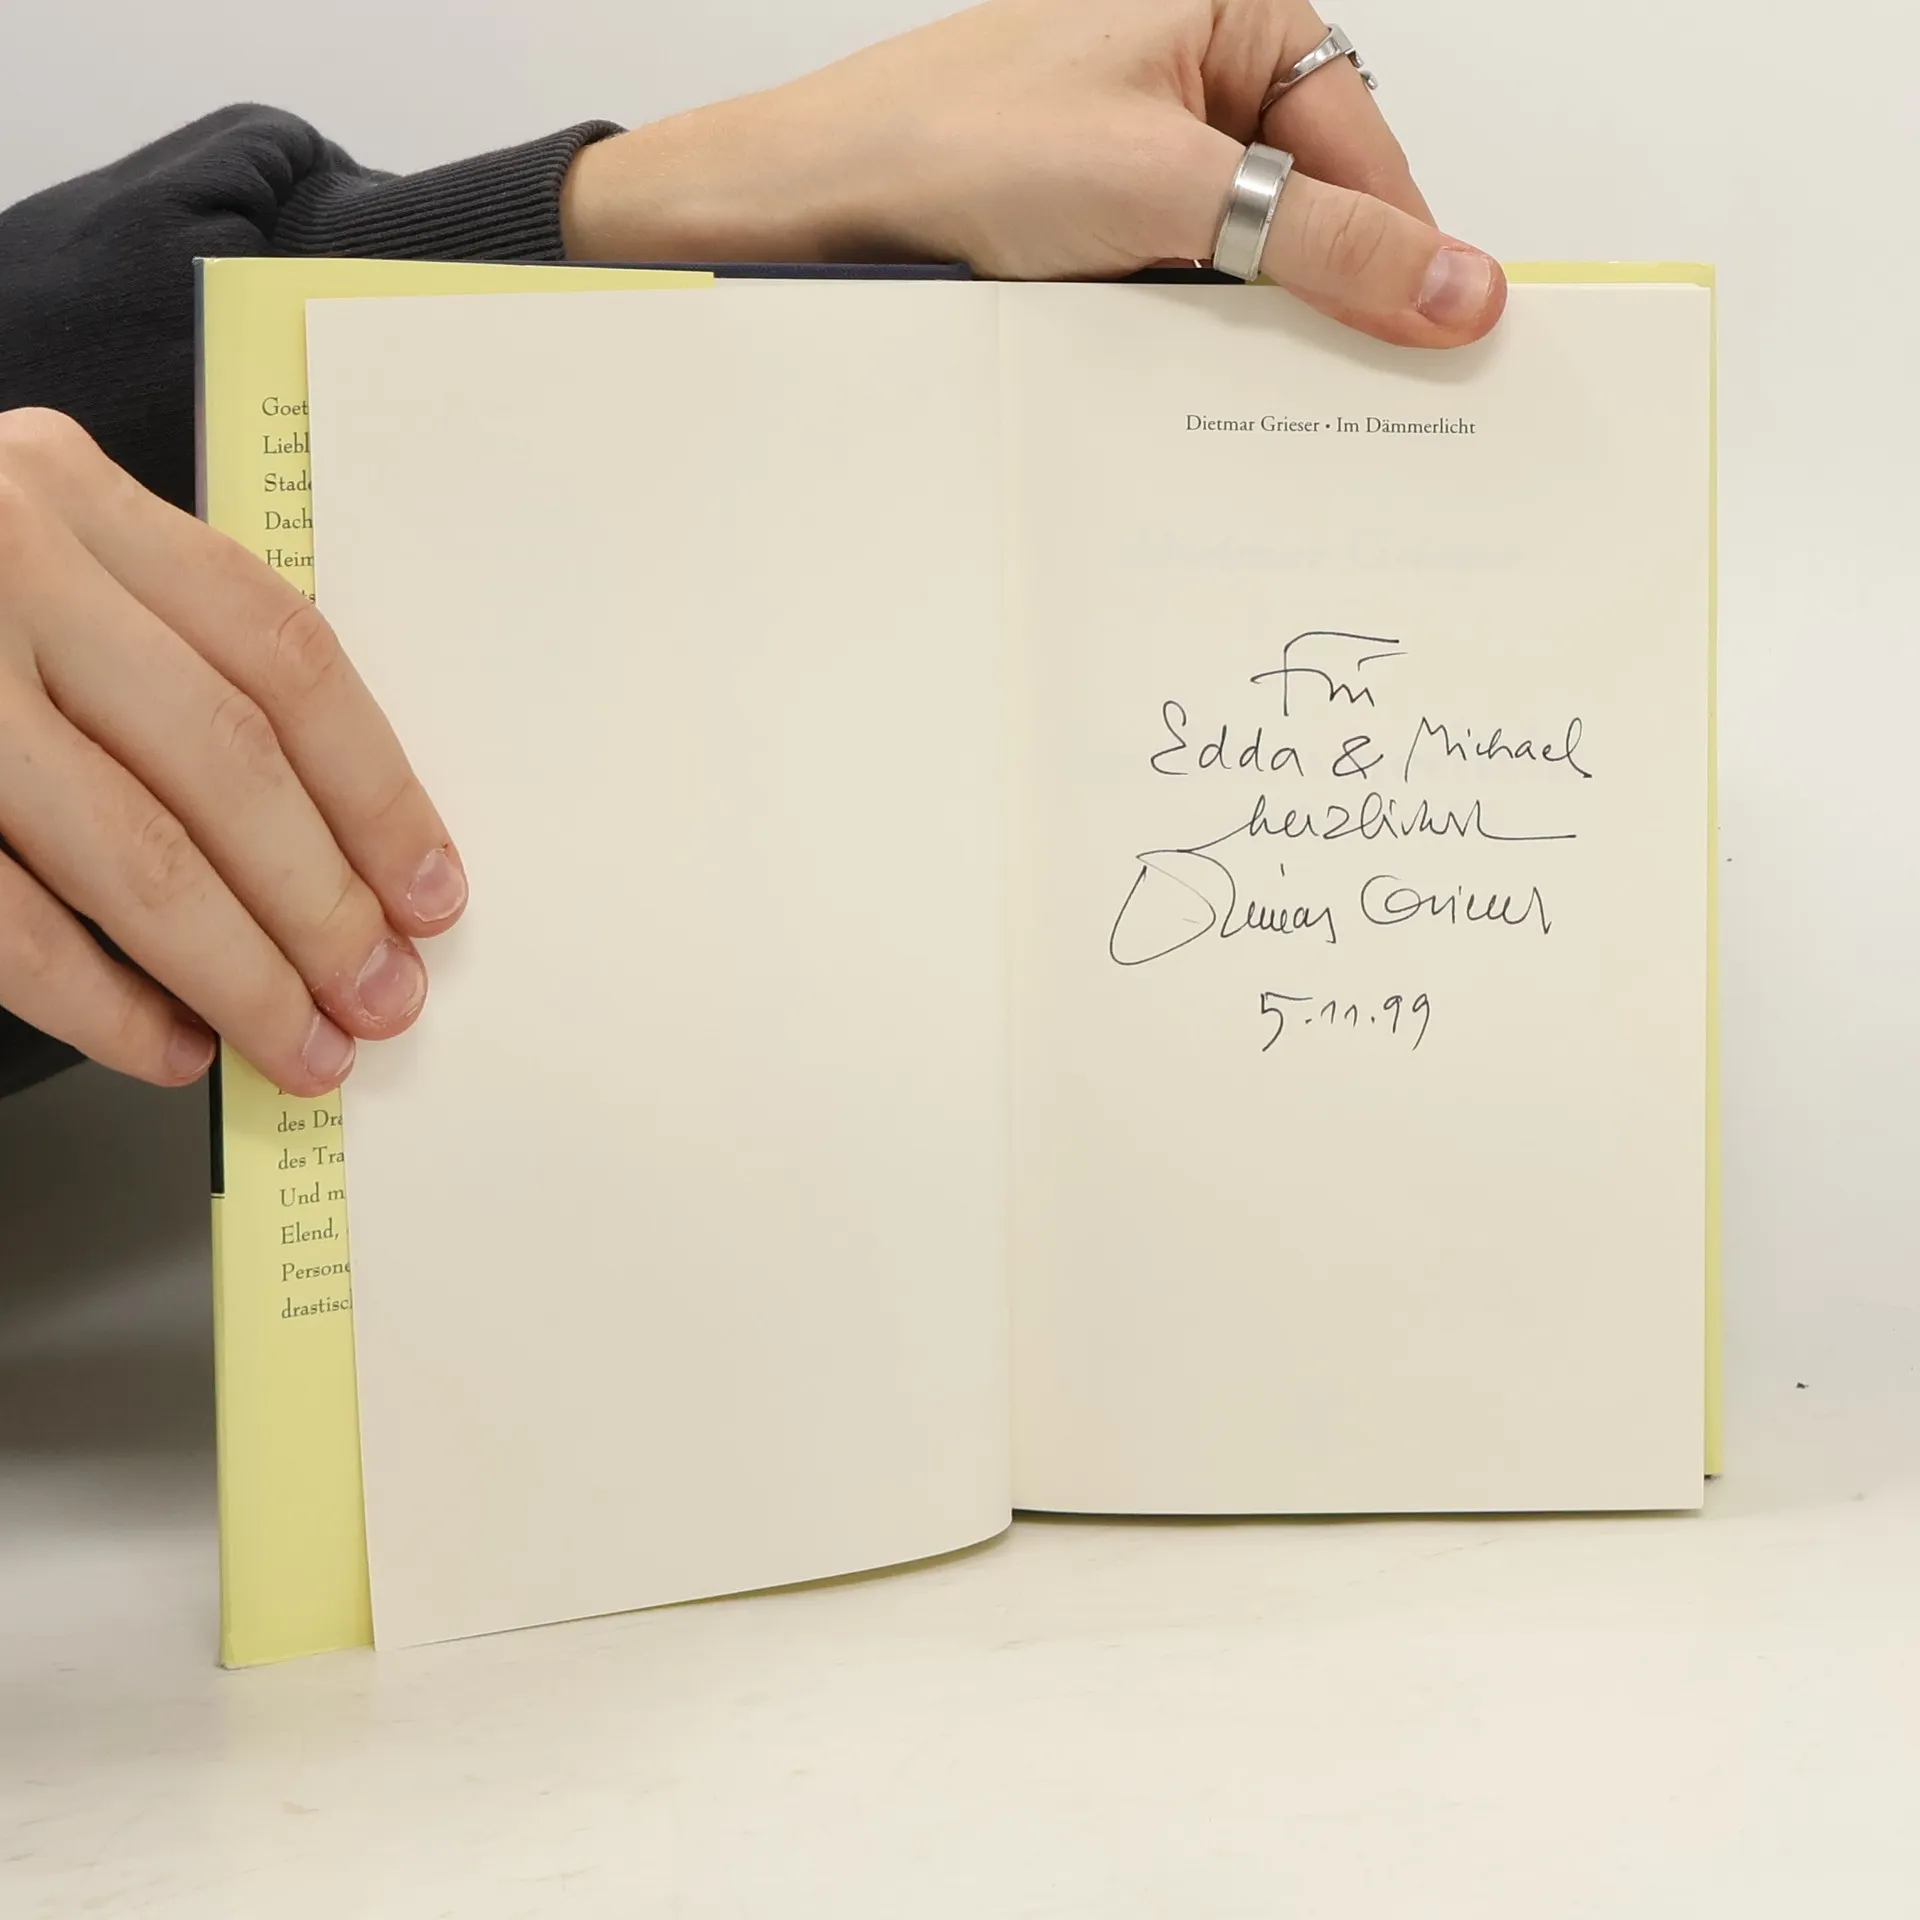 Goet
Liebl
Stade
Dach
Heim
ts
des Dra
des Tra
Und m
Elend,
Persone
drastisch
Dietmar Grieser • Im Dämmerlicht
Für
Edda & Michael
herzlichst
Dietmar Grieser
5.11.99